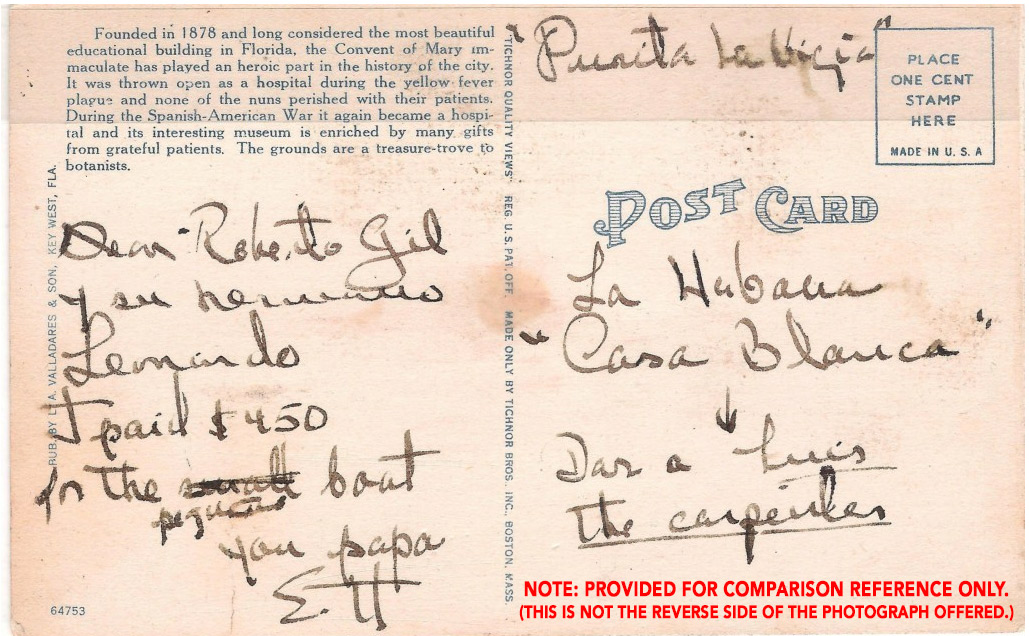 Founded in 1878 and long considered the most beautiful
educational building in Florida, the Convent of Mary Im-
maculate has played an heroic part in the history of the city.
It was thrown open as a hospital during the yellow fever
plague and none of the nuns perished with their patients.
During the Spanish-American War it again became a hospi-
tal and its interesting museum is enriched by many gifts
from grateful patients. The grounds are a treasure-trove to
botanists.
PUB. BY L. A. VALLADARES & SON, KEY WEST, FLA.
Dear Roberto Gil
y su hermano
Leonardo
I paid $450
for the small boat
you papa
E. H
64753
"TICHNOR QUALITY VIEWS" REG. U. S. PAT. OFF. MADE ONLY BY TICHNOR BROS., INC., BOSTON, MASS.
La Vigia"
PLACE
ONE CENT
STAMP
HERE
MADE IN U. S. A
POST CARD
La Habana
"Casa Blanca"
Dar a Luis
the carpenter
NOTE: PROVIDED FOR COMPARISON REFERENCE ONLY.
(THIS IS NOT THE REVERSE SIDE OF THE PHOTOGRAPH OFFERED.)